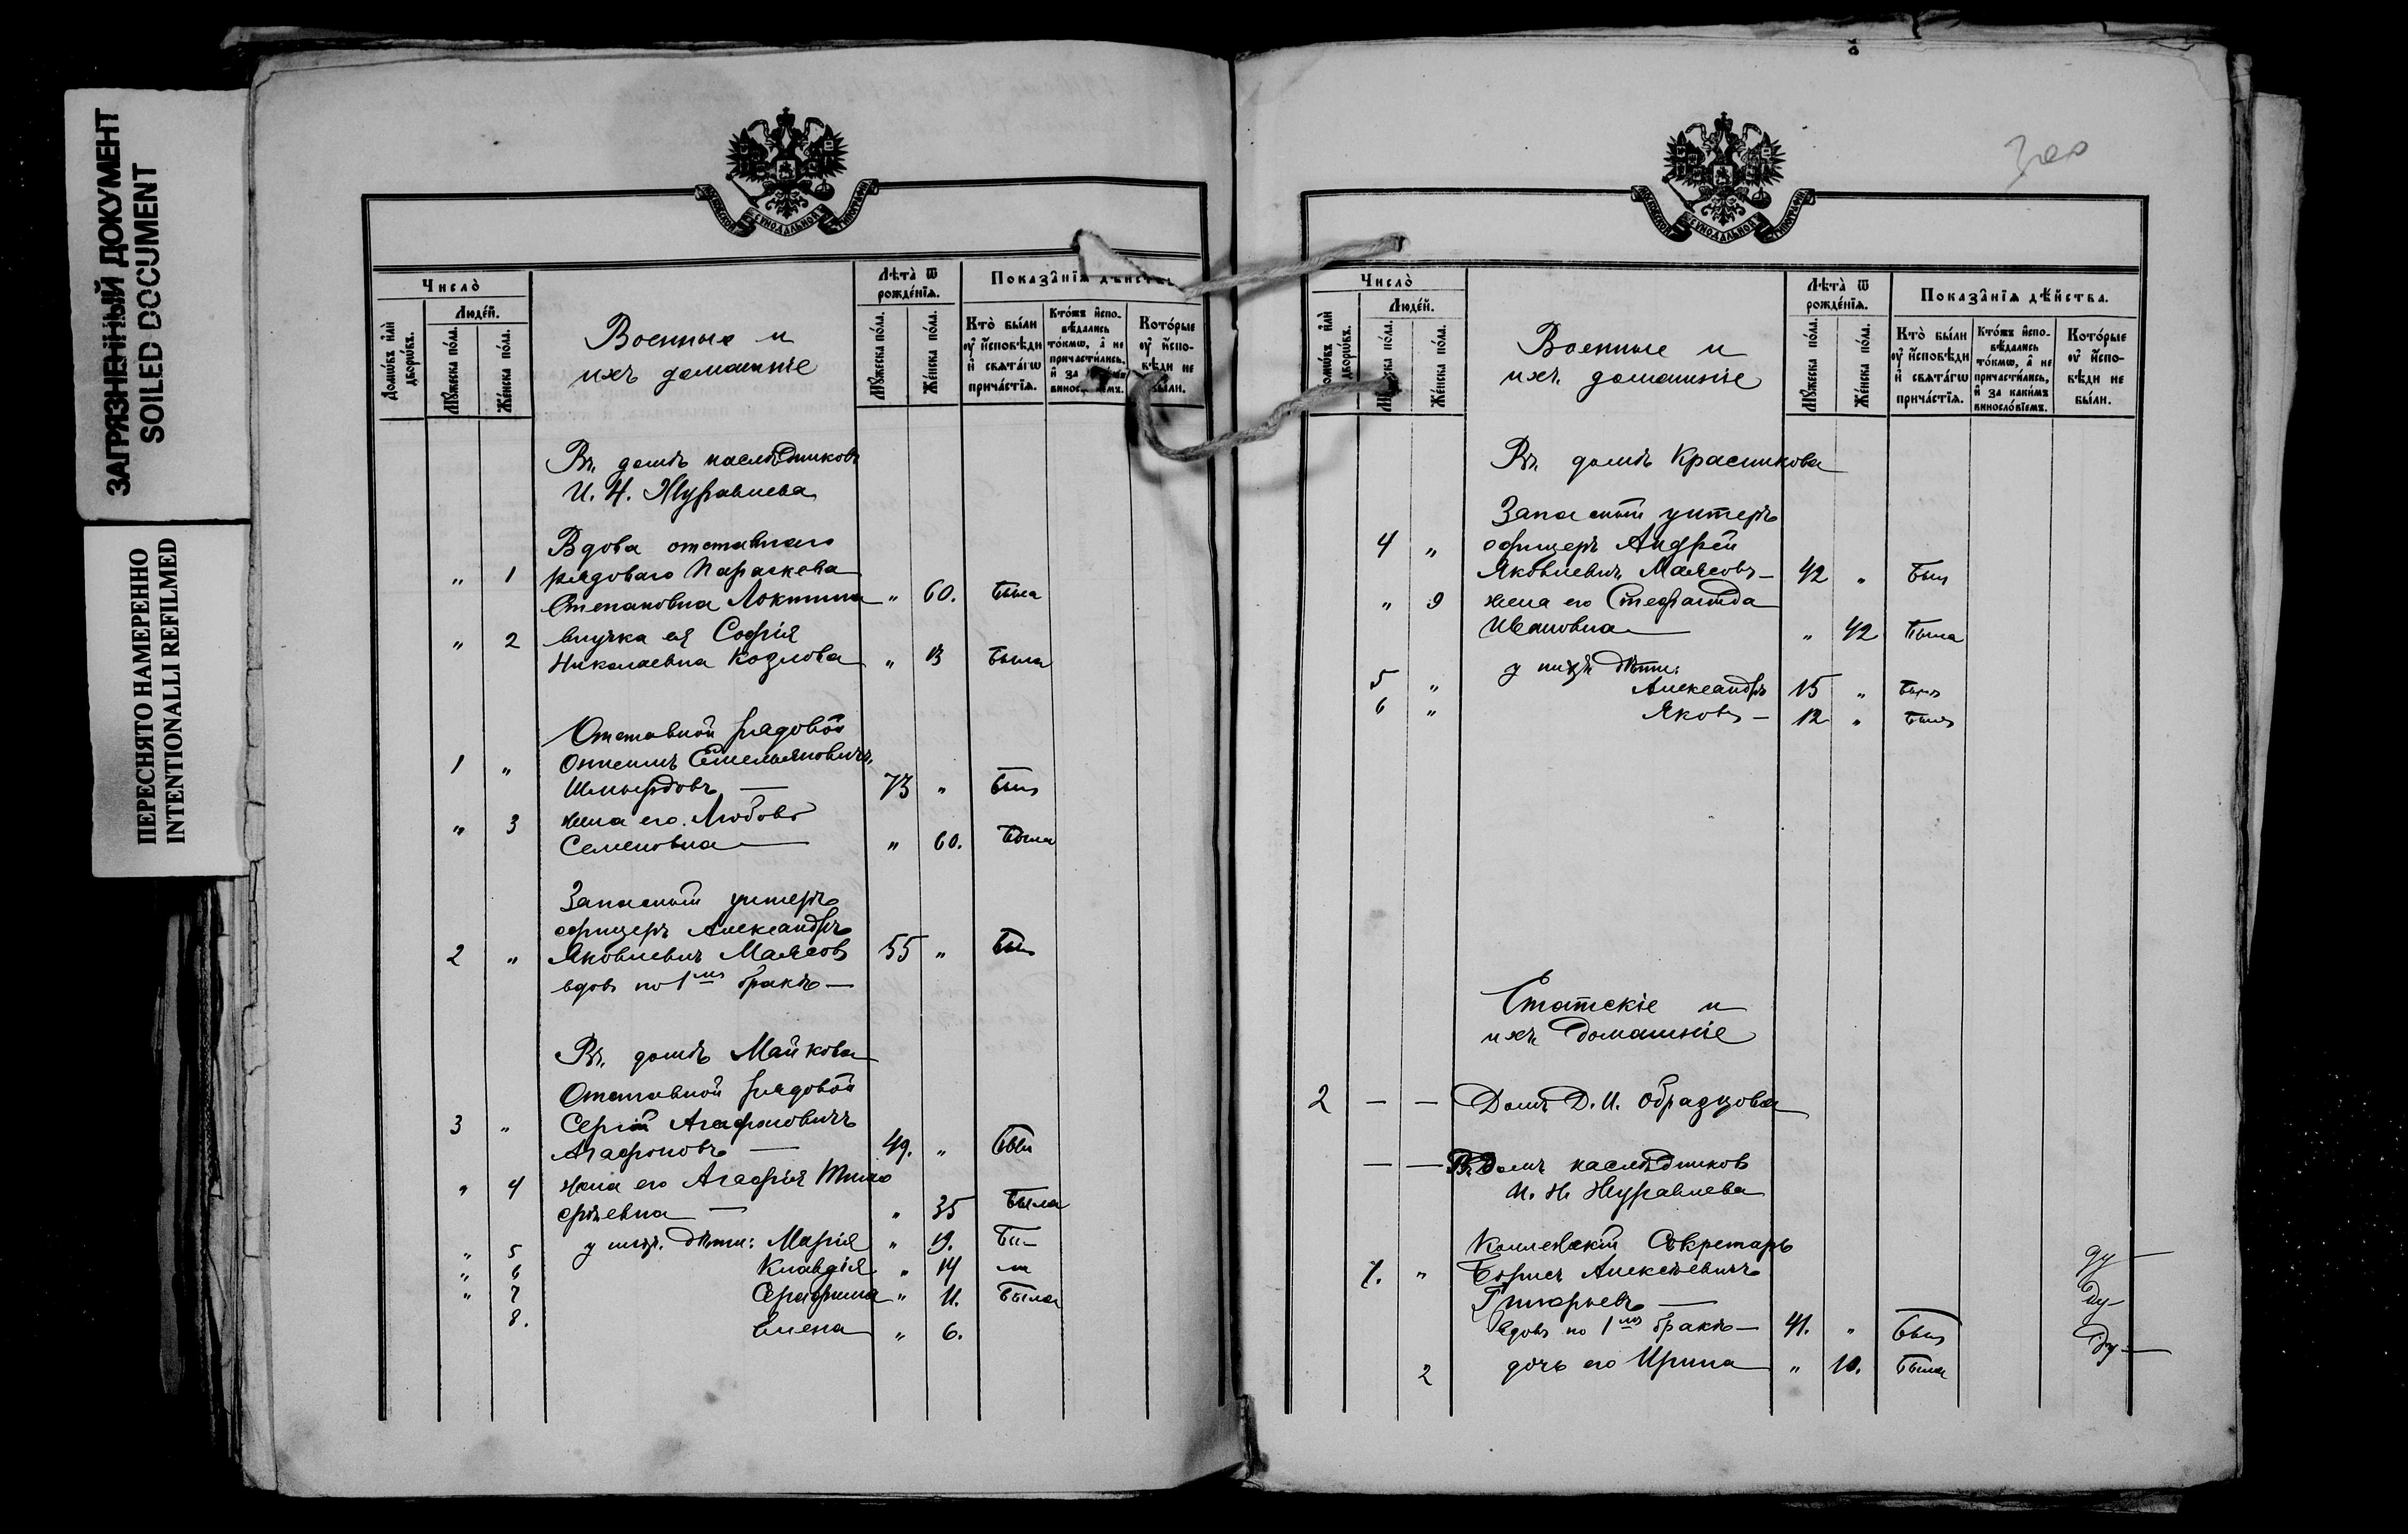 ЗАГРЯЗНЕННЫЙ ДОКУМЕНТ
SOILED DOCUMENT
ПЕРЕСНЯТО НАМЕРЕННО
INTENTIONALLI REFILMED
МОСКОВСКОЙ СѴНОДАЛЬНОЙ ТИПОГРАФІИ
Число̀
Домѡ́въ и҆лѝ дворѡ́въ.
Люде́й.
Мꙋ́жеска по́ла.
Же́нска по́ла.
Военные и
ихъ домашніе
Лѣ́та ѿ рожде́нїѧ.
Мꙋ́жеска по́ла.
Же́нска по́ла.
Показа̂нїѧ дѣйст
Кто̀ бы́ли оу҆ и҆сповѣ́ди и҆ свѧта́гѡ прича́стїѧ.
Кто́жъ и҆спо-вѣ́дались то́кмѡ, а҆ не причасти́лись, и҆ за
Кото́рые оу҆ и҆спо-вѣ́ди не бы́ли.
Въ домѣ наслѣдниковъ
И. Н. Журавлева
Вдова отставнаго
" 1 рядоваго Параскева
Степановна Локтина " 60. была
" 2 внучка ея Софія
Николаевна Козлова " 13 была
Отставной рядовой
1 " Онисимъ Емельяновичъ
Шмырдовъ — 73 " былъ
" 3 жена его Любовь
Семеновна — " 60. была
Запасный унтеръ
офицеръ Александръ
2 " Яковлевичъ Малясовъ 55 " былъ
вдовъ по 1мъ бракѣ —
Въ домѣ Майкова
Отставной рядовой
3 " Сергій Агафоновичъ
Агафоновъ — 49. " былъ
" 4 жена его Агафія Тимо
феевна — " 35 была
" 5 у нихъ дѣти: Марія " 19. бы—
" 6 Клавдія " 14
" 7 Серафима " 11. была
8. Елена " 6.
МОСКОВСКОЙ СѴНОДАЛЬНОЙ ТИПОГРАФІИ
Число̀
Домѡ́въ и҆лѝ дворѡ́въ.
Люде́й.
Мꙋ́жеска по́ла.
Же́нска по́ла.
Военные и
ихъ домашніе
Лѣ́та ѿ рожде́нїѧ.
Мꙋ́жеска по́ла.
Же́нска по́ла.
Показа̂нїѧ дѣ́йства.
Кто̀ бы́ли оу҆ и҆сповѣ́ди и҆ свѧта́гѡ прича́стїѧ.
Кто́жъ и҆спо-вѣ́дались то́кмѡ, а҆ не причасти́лись, и҆ за каки́мъ виносло́вїемъ.
Кото́рые оу҆ и҆спо-вѣ́ди не бы́ли.
Въ домѣ Красикова
Запасный унтеръ
4 " офицеръ Андрей
Яковлевичъ Малясовъ — 42 " былъ
" 9 жена его Стефанида
Ивановна — " 42 была
у нихъ дѣти:
5 " Александръ 15 " былъ
6 " Яковъ — 12 " былъ
Статскіе и
ихъ домашніе
2 — — Домъ Д. И. Образцова
— — Въ Домѣ наслѣдниковъ
И. Н. Журавлева
Коллежскій Секретарь
1. " Борисъ Алексѣевичъ
Григорьевъ —
вдовъ по 1мъ бракѣ — 41. " былъ
2 дочь его Ирина " 10. была